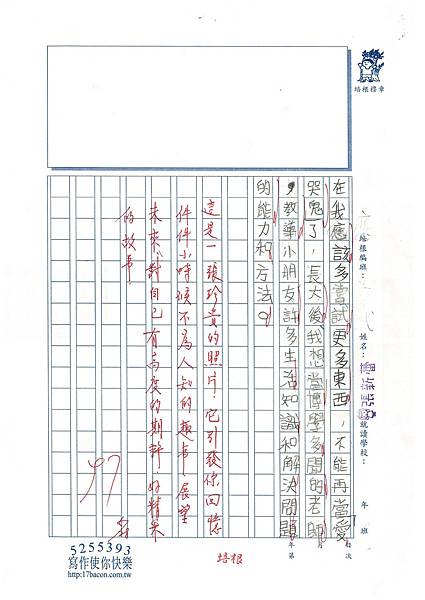 培根標章
培根編班：
姓名：
就讀學校：
年 班
在我應該多嘗試更多東西，不能再當愛
哭鬼了，長大後我想當博學多聞的老師
，教導小朋友許多生活知識和解決問題
的能力和方法。
這是一張珍貴的照片！它引發你回憶
件件小時候不為人知的趣事，展望
未來，對自己有高度的期許，好精采
的故事
97
年
第
頁
次
培根
5255393
寫作使你快樂
http://17bacon.com.tw